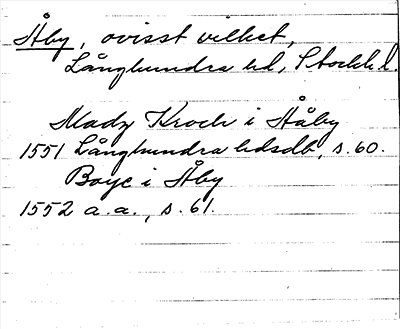 Åby, ovisst vilket,
Långhundra hd, Stockh. l.
Madz Kroch i Ååby
1551 Långhundra hdsdb, s. 60.
Boye i Åby
1552 a. a., s. 61.